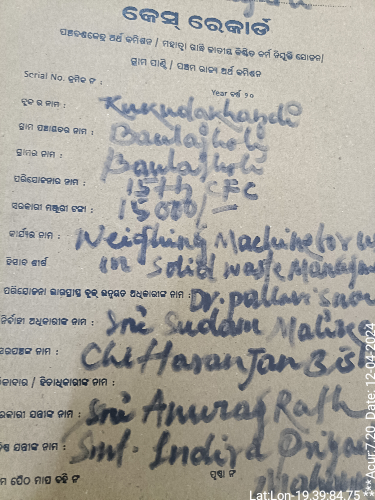 କେସ୍ ରେକର୍ଡ
ପଞ୍ଚଦଶକେନ୍ଦ୍ର ଅର୍ଥ କମିଶନ / ମହାତ୍ମା ଗାନ୍ଧି ଜାତୀୟ ନିଶ୍ଚିତ କର୍ମ ନିଯୁକ୍ତି ଯୋଜନା/
ଗ୍ରାମ ପାଣ୍ଠି / ପଞ୍ଚମ ରାଜ୍ୟ ଅର୍ଥ କମିଶନ
Serial No. କ୍ରମିକ ନଂ :
Year ବର୍ଷ ୨୦
ବ୍ଲକ ର ନାମ : Kukudakhandi
ଗ୍ରାମ ପଞ୍ଚାୟତର ନାମ : Baulajholi
ଗ୍ରାମର ନାମ : Baulajholi
ପରିଯୋଜନାର ନାମ : 15th CFC
ସରକାରୀ ମଞ୍ଜୁରୀ ଟଙ୍କା : 15000/-
କାର୍ଯ୍ୟର ନାମ : Weighing Machine for
ହିସାବ ଶୀର୍ଷ Solid waste
ପରିଯୋଜନା ଭାରପ୍ରାପ୍ତ ବ୍ଲକ୍ ଉନ୍ନୟନ ଅଧିକାରୀଙ୍କ ନାମ : Dr. pallavi
ନିର୍ବାହୀ ଅଧିକାରୀଙ୍କ ନାମ : Sri Sudam
ସରପଞ୍ଚଙ୍କ ନାମ : Chittaranjan
/ ହିତାଧିକାରୀଙ୍କ ନାମ :
ସରକାରୀ ଯନ୍ତ୍ରୀଙ୍କ ନାମ : Sri Anurag Rath
ଯନ୍ତ୍ରୀଙ୍କ ନାମ : Smt. Indira
ମାପ ବହି ନଂ ପୃଷ୍ଠା ନଂ
Lat:Lon-19.39:84.75 ***Acur:7/20 Date: 12-04-2024